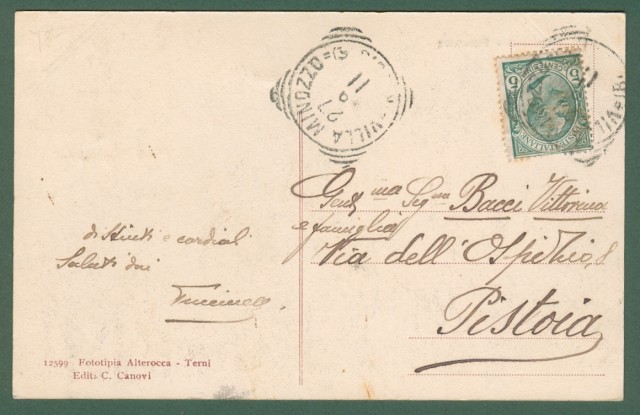 VILLA MINOZZO
27 9 11
5 CENTESIMI 5
POSTE ITALIANE
Gent.ma Sig.na Bacci Vittorina
e famiglia
Via dell' Ospizio, 8
Pistoia
distinti e cordiali
Saluti dai
12599 Fototipia Alterocca - Terni
Edit. C. Canovi